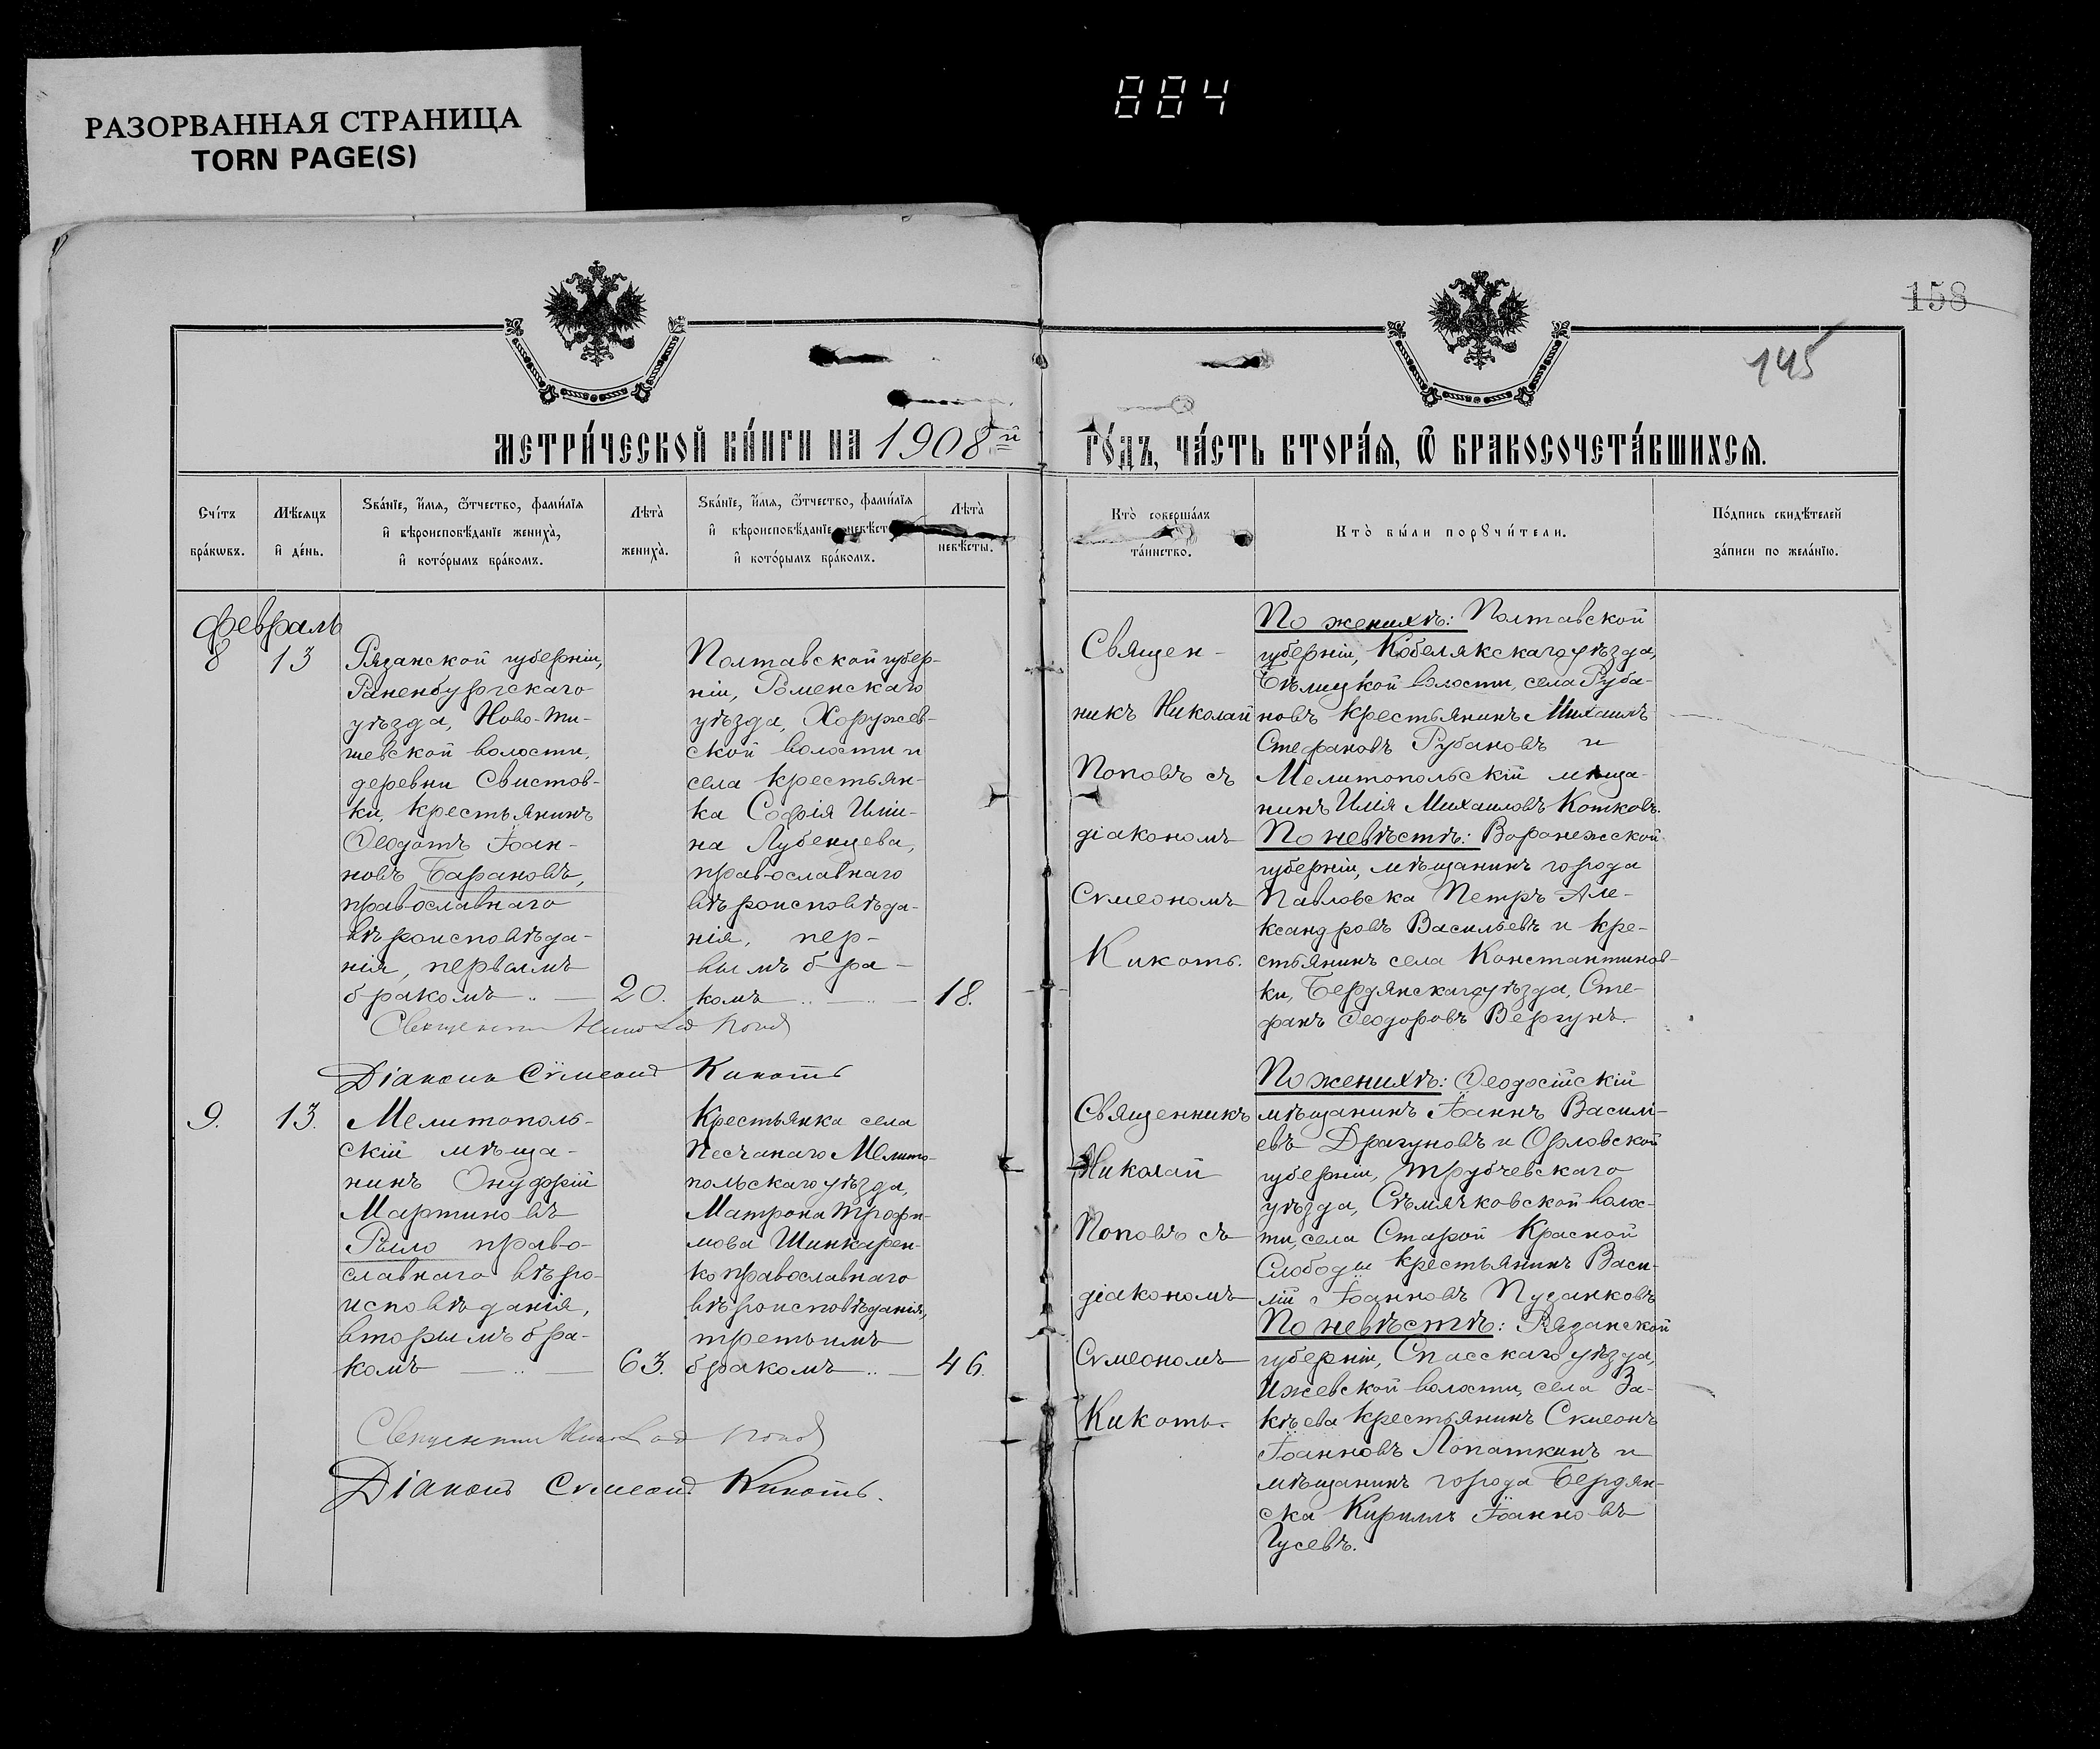 884
РАЗОРВАННАЯ СТРАНИЦА
TORN PAGE(S)
158
145
МЕТРИ́ЧЕСКОЙ КНИ́ГИ НА 1908й
ГО́ДЪ, ЧА́СТЬ ВТОРА́Я, Ѿ БРАКОСОЧЕТА́ВШИХСЯ.
Сче́тъ
бра́кѡвъ.
Мѣсяцъ
и҆ де́нь.
Зва́нїе, и҆́мя, ѻ҆́тчество, фами́лїя
и҆ вѣроисповѣ́данїе жениха̀,
и҆ кото́рымъ бра́комъ.
Лѣта̀
жениха̀.
Зва́нїе, и҆́мя, ѻ҆́тчество, фами́лїя
и҆ вѣроисповѣ́данїе невѣ́сты
и҆ кото́рымъ бра́комъ.
Лѣта̀
невѣ́сты.
Кто̀ соверша́лъ
та́инство.
Кто̀ бы́ли порꙋчи́тели.
По́дпись свидѣ́телей
за́писи по жела́нїю.
февраль
8
13
Рязанской губерніи,
Раненбургскаго
уѣзда, Ново-Ти-
шевской волости,
деревни Свистов-
ки, крестьянинъ
Ѳеодотъ Іоан-
новъ Барановъ,
православнаго
вѣроисповѣда-
нія, первымъ
бракомъ
20.
Полтавской губер-
ніи, Роменскаго
уѣзда, Хоружев-
ской волости и
села крестьян-
ка Софія Ильи-
на Лубенцева,
православнаго
вѣроисповѣда-
нія, пер-
вымъ бра-
комъ
18.
Священникъ Николай Поповъ
Діаконъ Сѵмеонъ Кикоть
Священ-
никъ Николай
Поповъ съ
діакономъ
Сѵмеономъ
Кикоть.
По женихѣ: Полтавской
губерніи, Кобелякскаго уѣзда,
Бѣлицкой волости, села Руба-
новъ крестьянинъ Михаилъ
Стефановъ Рубановъ и
Мелитопольскій мѣща-
нинъ Илія Михаиловъ Котковъ.
По невѣстѣ: Воронежской
губерніи, мѣщанинъ города
Павловска Петръ Але-
ксандровъ Васильевъ и кре-
стьянинъ села Константинов-
ки, Бердянскаго уѣзда, Сте-
фанъ Ѳеодоровъ Вергунъ.
9.
13.
Мелитополь-
скій мѣща-
нинъ Онуфрій
Мартиновъ
Рыло право-
славнаго вѣро-
исповѣданія,
вторымъ бра-
комъ
63.
Крестьянка села
Песчанаго Мелито-
польскаго уѣзда,
Матрона Трофи-
мова Шинкарен-
ко православнаго
вѣроисповѣданія,
третьимъ
бракомъ
46.
Священникъ Николай Поповъ
Діаконъ Сѵмеонъ Кикоть.
Священникъ
Николай
Поповъ съ
діакономъ
Сѵмеономъ
Кикоть.
По женихѣ: Ѳеодосійскій
мѣщанинъ Іоаннъ Василі-
евъ Драгуновъ и Орловской
губерніи, Трубчевскаго
уѣзда, Сѣмячковской волос-
ти, села Старой Красной
Слободы крестьянинъ Васи-
лій Іоанновъ Пузанковъ
По невѣстѣ: Рязанской
губерніи, Спасскаго уѣзда,
Ижевской волости, села За-
кѣева крестьянинъ Сѵмеонъ
Іоанновъ Лопаткинъ и
мѣщанинъ города Бердян-
ска Кириллъ Іоанновъ
Гусевъ.